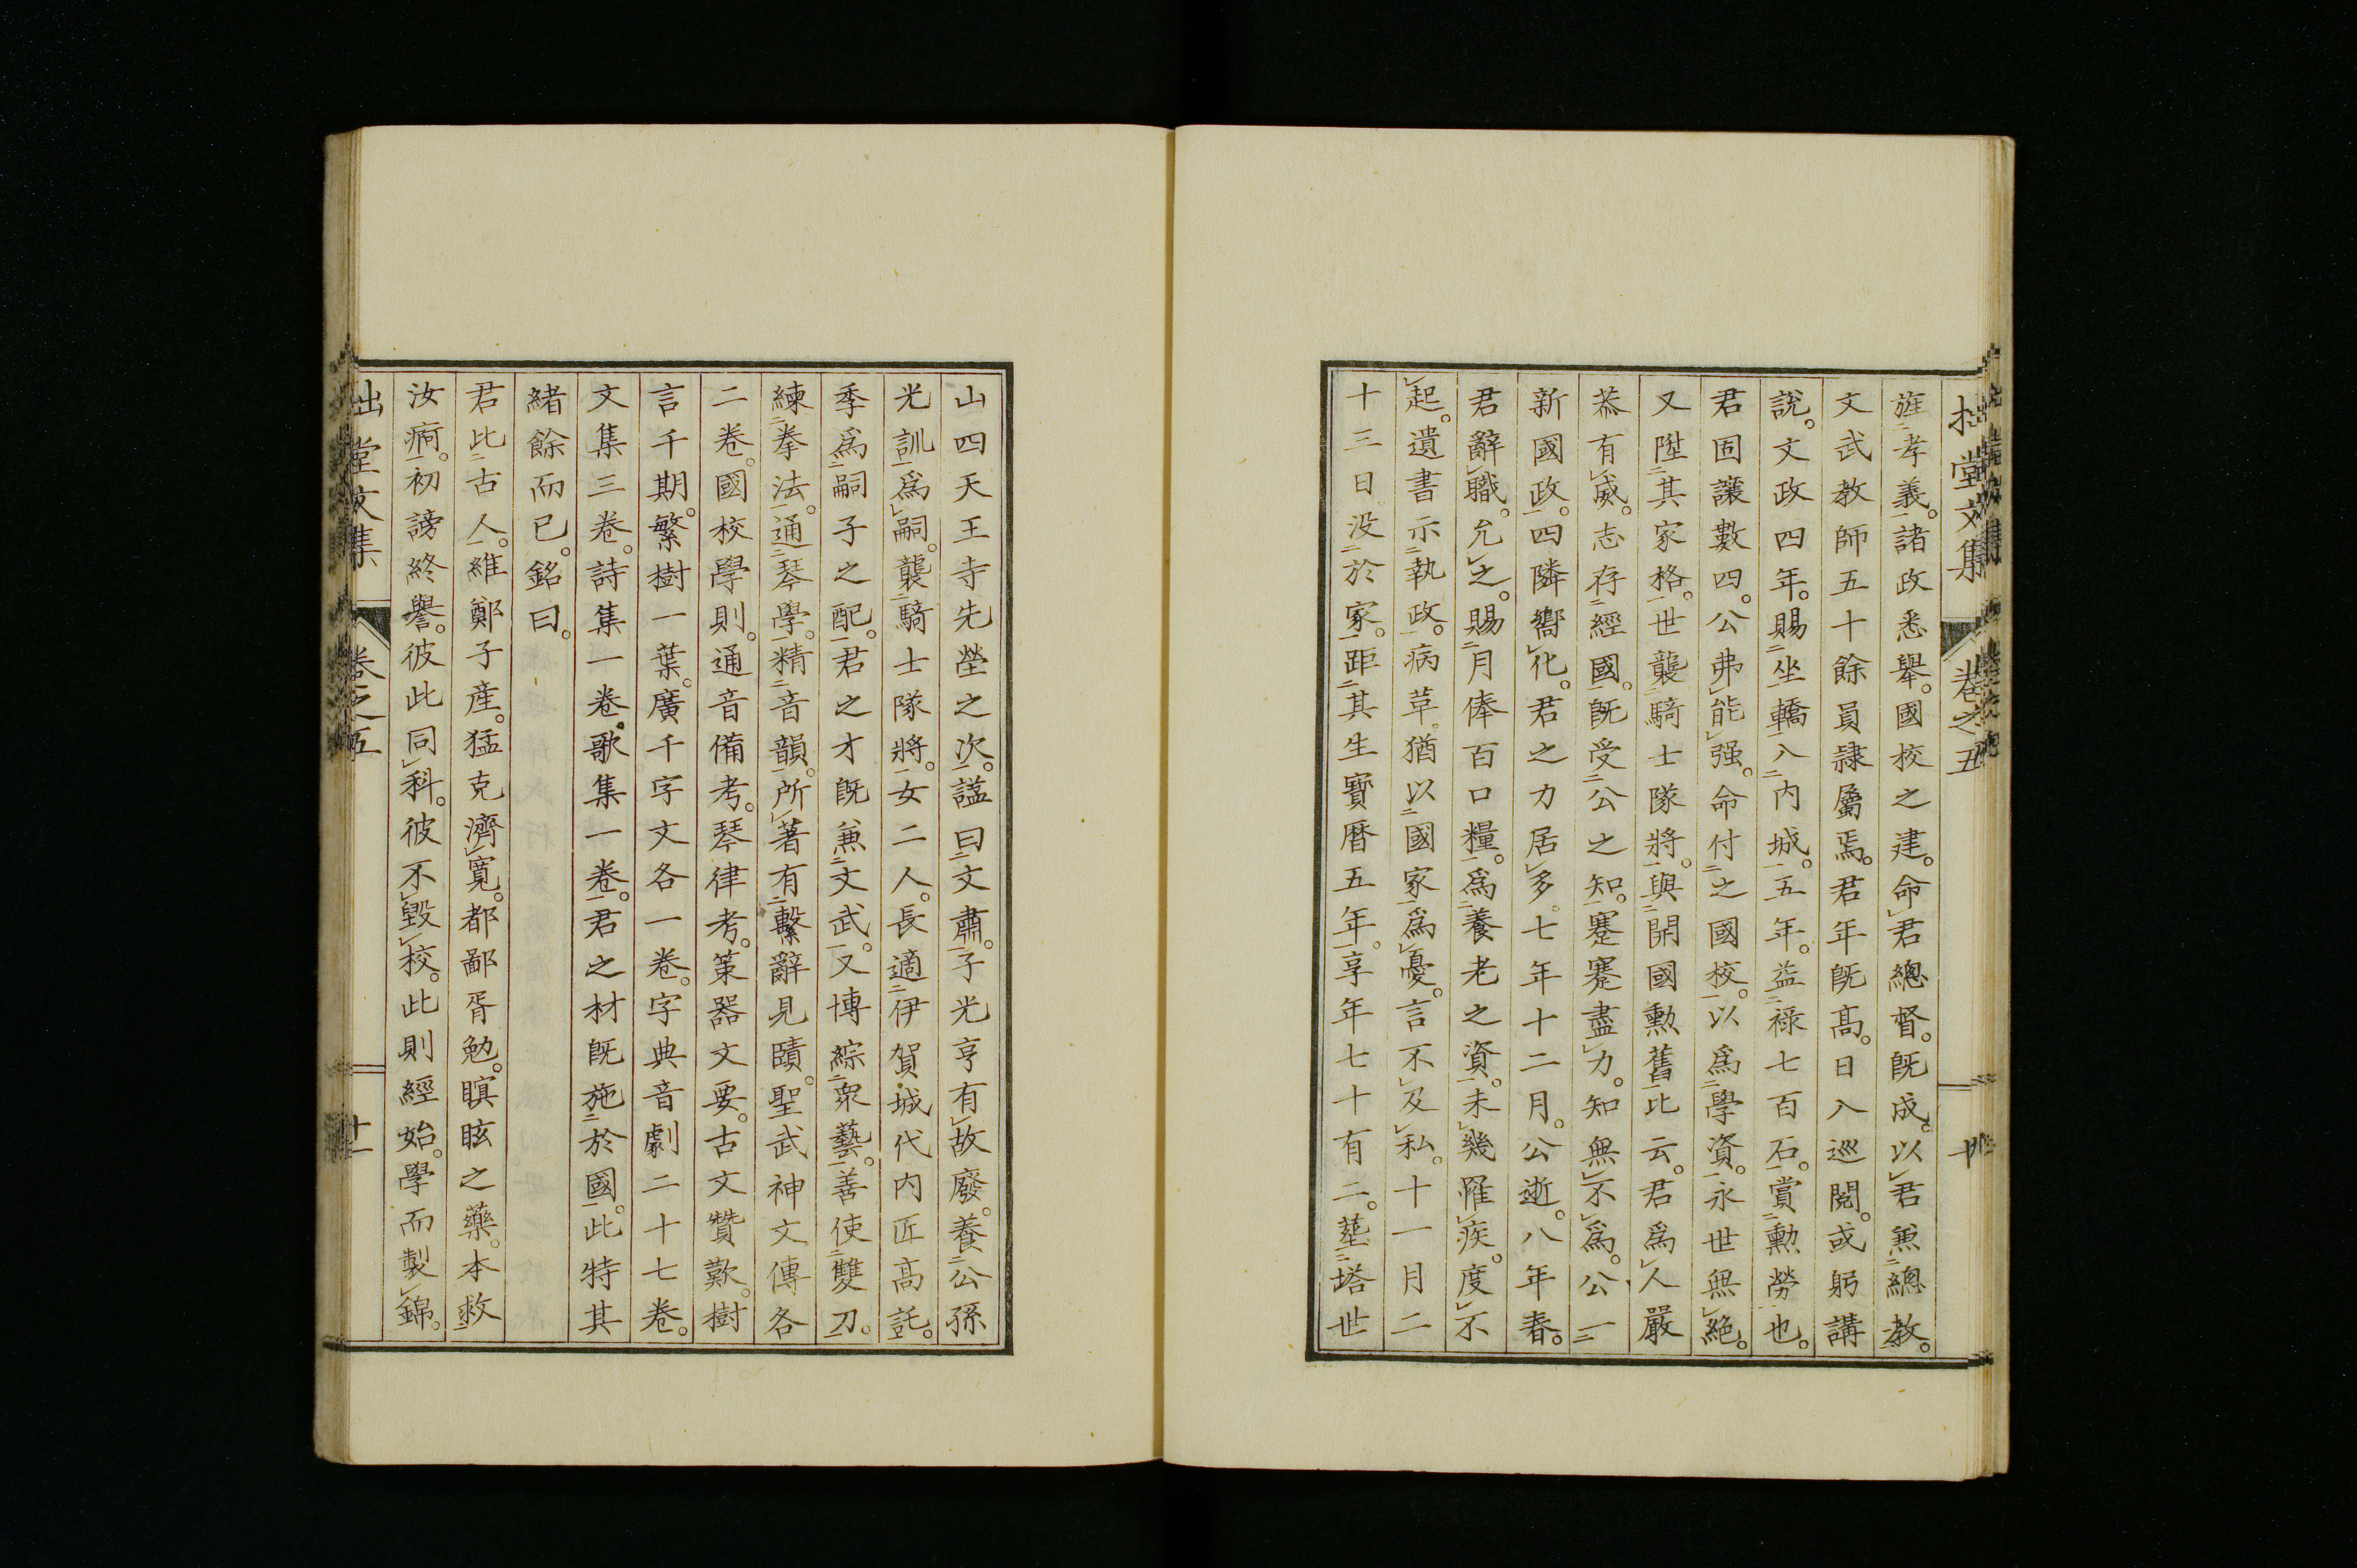 拙堂文集 卷之五 十
旌孝義。諸政悉舉。國校之建。命君總督。既成。以君兼總教。
文武教師五十餘員隷屬焉。君年既髙。日入巡閲。或躬講
說。文政四年。賜坐轎入内城。五年。益禄七百石。賞勳勞也。
君固讓數四。公弗能强。命付之國校。以爲學資。永世無絶。
又陞其家格。世襲騎士隊將。與開國勳舊比云。君爲人嚴
恭有威。志存經國。既受公之知。蹇蹇盡力。知無不爲。公一
新國政。四隣嚮化。君之力居多。七年十二月。公逝。八年春。
君辭職。允之。賜月俸百口糧。爲養老之資。未幾罹疾。度不
起。遺書示執政。病革。猶以國家爲憂。言不及私。十一月二
十三日没於家。距其生寶暦五年。享年七十有二。塟塔世
山四天王寺先塋之次。諡曰文肅。子光亨有故廢。養公孫
光訓爲嗣。襲騎士隊將。女二人。長適伊賀城代内匠高託。
季爲嗣子之配。君之才既兼文武。又博綜衆藝。善使雙刀。
練拳法。通琴學。精音韻。所著有繫辭見賾。聖武神文傳各
二卷。國校學則。通音備考。琴律考。策器文要。古文贊歎。樹
言千期。繁樹一葉。廣千字文各一卷。字典音劇二十七卷。
文集三卷。詩集一卷。歌集一卷。君之材既施於國。此特其
緒餘而已。銘曰。
君比古人。維鄭子産。猛克濟寛。都鄙胥勉。瞑眩之藥。本救
汝痾。初謗終譽。彼此同科。彼不毀校。此則經始。學而製錦。
拙堂文集 卷之五 十一